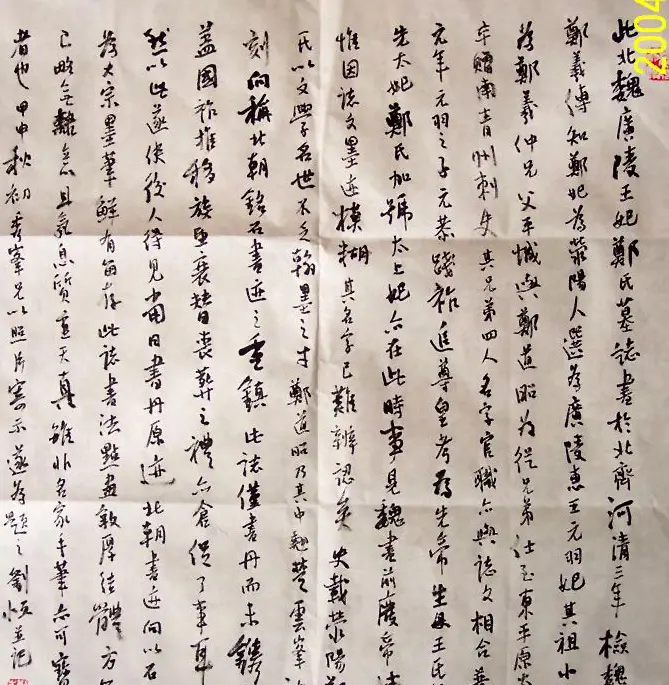 此北魏廣陵王妃鄭氏墓誌書於北齊河清三年檢魏
鄭羲傳知鄭妃為滎陽人選為廣陵惠王元羽妃其祖小
為鄭羲仲兄父平城與鄭道昭為從兄弟仕至東平原太
卒贈南青州刺史其兄弟四人名字官職亦與誌文相合普
元年元羽之子元恭踐祚追尊皇考為先帝生母王氏
先太妃鄭氏加號太上妃亦在此時事見魏書前廢帝
惟因誌文墨迹模糊其名字已難辨認矣史載滎陽鄭
氏以文學名世不乏翰墨之才鄭道昭乃其中翹楚雲峯
刻向稱北朝銘石書迹之重鎮此誌僅書丹而未鐫
蓋國祚推移族衰替喪葬之禮亦倉促了事耳
然以此遂使後人得見當日書丹原迹北朝書迹向以石
為大宗墨筆鮮有留存此誌書法點畫敦厚結體方
已略無隸意且氣息質重天真雖非名家手筆亦可寶
者也甲申秋初秀峯兄以照片寄示遂為題之劉恒並記
2004